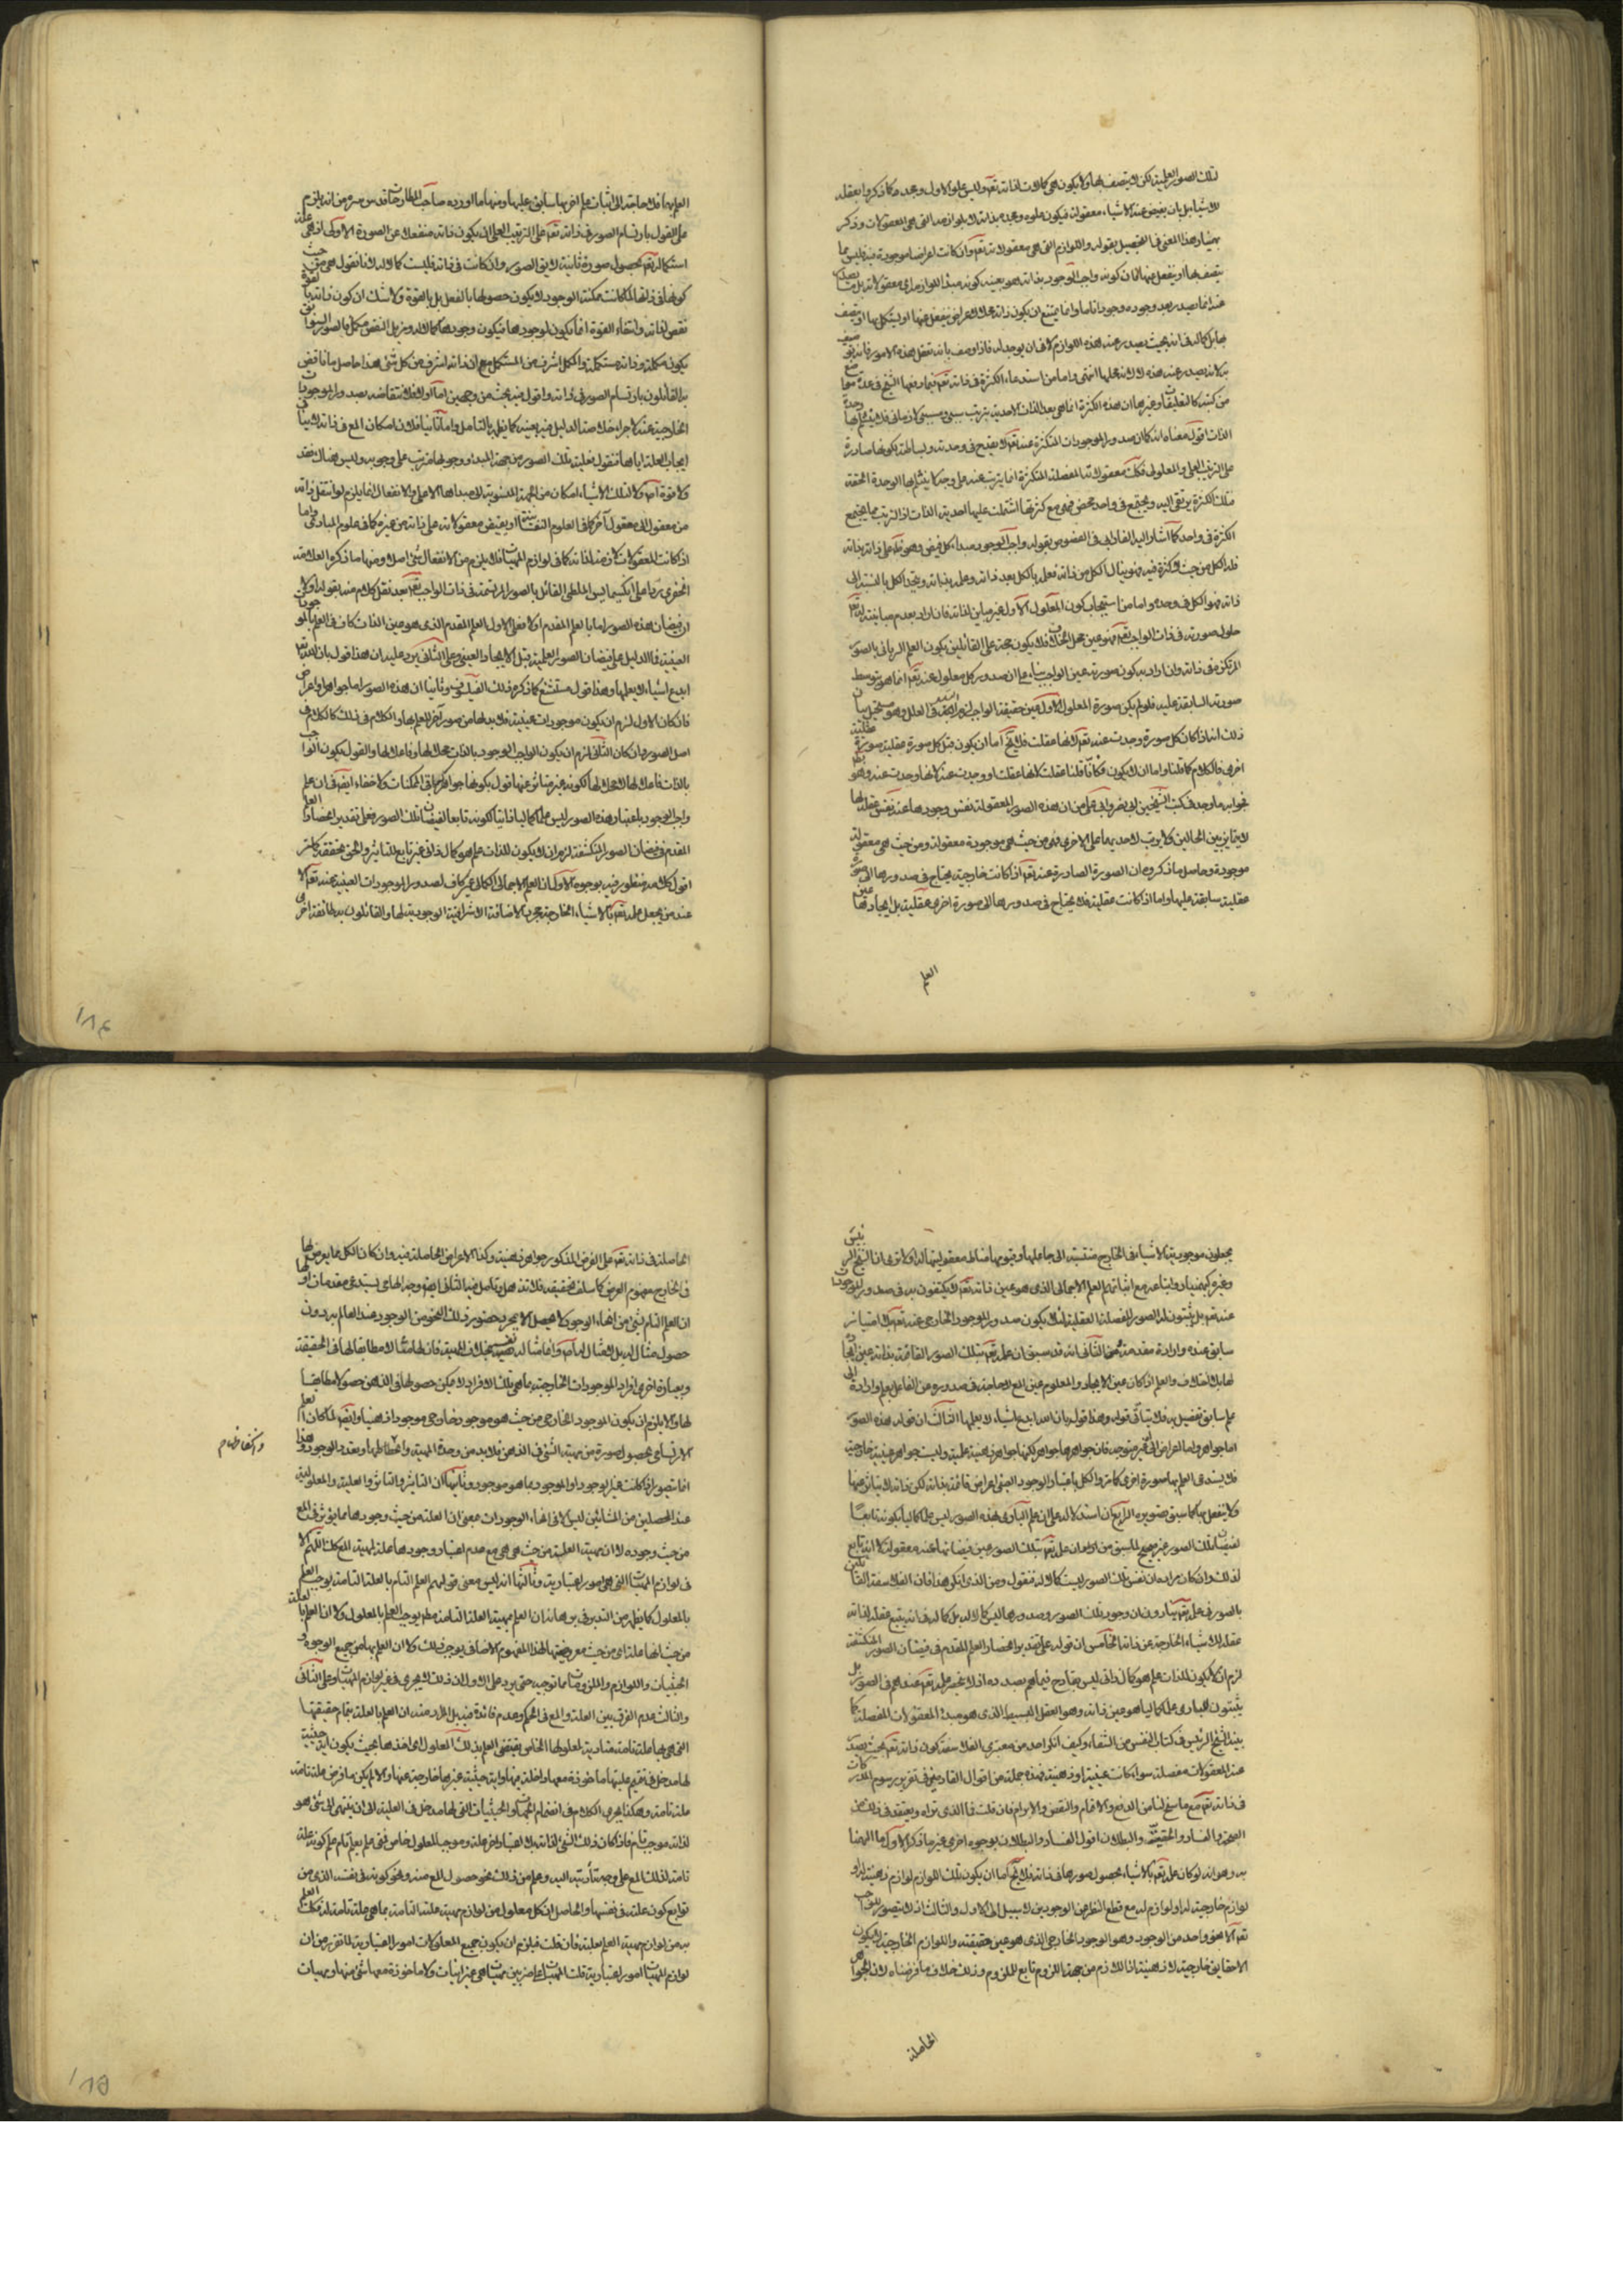 تلك الصور العلمية لكن لا يتصف بها ولا يكون هي كمالات لذاته تعم وليس علو الاول ومجده كما ذكروا بعقله
للاشياء بل بان يفيض عنه الاشياء معقولة فيكون علوه ومجده بذاته لا بلوازمه التي هي المعقولات وذكر
بهمنيار هذا المعنى في التحصيل بقوله واللوازم التي هي معقولاته تعم وان كانت اعراضا موجودة فيه فليس مما
يتصف بها او ينفعل عنها فان كونه واجب الوجود بذاته هو بعينه كونه مبدأ للوازمه اي معقولاته بل ما يصدر
عنه انما يصدر بعد وجوده وجودا تاما وانما يمتنع ان يكون ذاته محلا لاعراض ينفعل عنها او يستكمل بها او يتصف
بها بل كماله في انه بحيث يصدر عنه هذه اللوازم لا في ان يوجد له فاذا وصف بانه يعقل هذه الامور فانه يوصف
به لانه يصدر عنه هذه لا لانه محلها انتهى واما من استدعاء الكثرة في ذاته تعم فبما دفعها الشيخ في عدة مواضع
من كتبه كالتعليقات وغيرها ان هذه الكثرة انما هي بعد الذات الاحدية بترتيب سببي ومسببي لا زماني فلا ينثلم بها وحدة
الذات اقول معناه انه كما ان صدور الموجودات المتكثرة عنه تعم لا يقدح في وحدته وبساطته لكونها صادرة
على الترتيب العلي والمعلولي فكذلك معقولاته المفصلة المتكثرة انما يترتب عنه على وجه لا ينثلم بها الوحدة الحقة
فتلك الكثرة يرتقي اليه ويجتمع في واحد محض فهي مع كثرتها اشتملت عليها احدية الذات اذ الترتيب مما يجمع
الكثرة في واحد كما اشار اليه الفارابي في الفصوص بقوله واجب الوجود مبداء كل فيض وهو ظاهر على ذاته بذاته
فله الكل من حيث لا كثرة فيه فهو ينال الكل من ذاته فعلمه بالكل بعد ذاته وعلمه بذاته ويتحد الكل بالنسبة الى
ذاته فهو الكل في وحده واما من استيجاب كون المعلول الاول غير مباين لذاته فان اراد بعدم مباينته له تعم
حلول صورته في ذات الواجب تعم فهو عين محل الخلاف فلا يكون حجة على القائلين بكون العلم الرباني بالصور
المرتكزة في ذاته وان اراد به كون صورته عين الواجب بناء على ان صدور كل معلول عنه تعم انما هو بتوسط
صورته السابقة عليه فلو لم يكن صورة المعلول الاول عين حقيقة الواجب لزم التسلسل في العلل وهو مستحيل بيان
ذلك انه اذا كان كل صورة وجدت عنه تعم لانها عقلت فلا يخ اما ان يكون قبل كل صورة عقلية صورة عقلية
اخرى فالكلام كما قلنا واما ان لا يكون فكانا قلنا عقلت لانها عقلت او وجدت عنه لانها وجدت عنه وهو ظ
فجوابه ما وجد في كتب الشيخين ابي نصر وابي علي من ان هذه الصور المعقولة نفس وجودها عنه نفس عقله لها
لا تمايز بين الحالين ولا ترتب لاحديهما على الاخرى فهي من حيث هي موجودة معقولة ومن حيث هي معقولة
موجودة وحاصل ما ذكروه ان الصورة الصادرة عنه تعم اذا كانت خارجية يحتاج في صدورها الى صورة
عقلية سابقة عليها واما اذا كانت عقلية فلا يحتاج في صدورها الى صورة اخرى عقلية بل ايجادها عين
العلم
العلم بها فلا حاجة الى اثبات علم اخر بها سابق عليها ومنها ما اورده صاحب المطارحات قدس سره من انه يلزم
على القول بارتسام الصور في ذاته تعم على الترتيب العلي ان يكون ذاته منفعلا عن الصورة الاولى اذ هي علة
استكماله تعم بحصول صورة ثانية لا يق الصور وان كانت في ذاته فليست كمالا له لانا نقول هي من حيث
كونها في ذاتها لما كانت ممكنة الوجود لا يكون حصولها بالفعل بل بالقوة ولا شك ان كون ذاته بالقوة
نقص لذاته وانتفاء القوة انما يكون لوجودها فيكون وجودها كمالا له ومزيل النقص مكمل بالصور السوابق
يكون مكملة وذاته مستكملة والمكمل اشرف من المستكمل مع ان ذاته اشرف من كل شئ هذا حاصل ما ناقض
به القائلون بارتسام الصور في ذاته واقول فيه بحث من وجهين اما اولا فلانتقاضه بصدور الموجودات
الخارجية عنه لاجراء خلاصة الدليل فيه بعينه كما يظهر بالتامل واما ثانيا فلان امكان المع في ذاته لا ينافي
ايجاب العلة اياها فنقول فعلية تلك الصور من جهة المبداء ووجوبها مترتب على وجوبه وليس هناك فقد
ولا قوة اصلا ولا لتلك الاشياء امكان من الجهة المنسوبة الى مبدأها الاعلى والانفعال انما يلزم لو انتقل ذاته
من معقول الى معقول آخر كما في العلوم النفسانية او يفيض معقولاته على ذاته من غيره كما في علوم المبادي واما
اذا كانت المعقولات لازمة لذاته كما في لوازم المهيات فلا يلزم من الانفعال شئ اصلا ومنها ما ذكره العلامة
الخفري ردا على انكسيمايس الملطي القائل بالصور المرتسمة في ذات الواجب تعم بعد نقل كلام منه بقوله اولا ان
ان فيضان هذه الصور اما بالعلم المقدم اولا فعلى الاول العلم المقدم الذي هو عين الذات كاف في العلم بالموجودات
العينية فما الدليل على فيضان الصور العلمية قبل الايجاد العيني وعلى الثاني يرد عليه ان هذا قول بان الله تعم
ابدع اشياء لا يعلمها وهذا قول مستشنع كما ذكره ذلك الفيلسوف وثانيا ان هذه الصور اما جواهر او اعراض
فان كان الاول لزم ان يكون موجودات عينية فلابد لها من صور آخر للعلم بها والكلام في ذلك كالكلام في
اصل الصور وان كان الثاني لزم ان يكون الواجب الوجود بالذات محلا لها وفاعلا لها والقول بكون الواجب
بالذات فاعلا لها لا محلا لها لكونه غير متاثر عنها قول بكونها جواهر كما في الممكنات ولا خفاء ايضا في ان علم
واجب الوجود باعتبار هذه الصور ليس علما كماليا ذاتيا لكونه تابعا لفيضان تلك الصور فعلى تقدير انحصار العلم
المقدم في فيضان الصور المنكشفة لزم ان لا يكون للذات علم هو كمال ذاتي غير تابع للتاثير والحق تحققه كما مر
اقول كلامه منظور فيه بوجوه الاول ان العلم الاجمالي الكمالي غير كاف لصدور الموجودات العينية عنه تعم الا
عند من يجعل علمه تعم بالاشياء الخارجية مجرد الاضافة الاشراقية الوجودية لها والقائلون به طائفة اخرى
يجعلون موجودية الاشياء في الخارج منتسبة الى جاعلها وقيومها مناط معقوليتها له اولا ترى ان الشيخ الرئيس
وغيره كبهمنيار واتباعه مع اثباتهم العلم الاجمالي الذي هو عين ذاته تعم لا يكتفون به في صدور الموجودات
عنه تعم بل يثبتون له الصور المفصلة العقلية لئلا يكون صدور الموجود الخارجي عنه تعم بلا امتياز
سابق عنده وارادة مقدمة من الثاني انه قد سبق ان علمه تعم بتلك الصور القائمة بذاته عين ايجاده
لها بلا اختلاف والعلم اذا كان عين الايجاد والمعلوم عين المع لا حاجة في صدوره من الفاعل بعلم وارادة الى
علم سابق تفصيل به فلا يتاتى قوله وهذا قول بان الله ابدع اشياء لا يعلمها الثالث ان قوله هذه الصور
اما جواهر واما اعراض الى آخره غير متوجه فان جواهرها جواهر لكنها جواهر ذهنية علمية وليست جواهر عينية خارجية
فلا يستدعى العلم بها صورة اخرى كما مر والكل باعتبار الوجود العيني اعراض قائمة بذاته لكن ذاته لا يتاثر عنها
ولا ينفعل بها كما سبق تصويره الرابع ان استدلاله على ان علم الباري بهذه الصور ليس علما كماليا بكونه تابعا
لفيضان تلك الصور غير صحيح لما سبق من ان علمه تعم بتلك الصور عين فيضانها عنه معقولة لا انه تابع
لذلك وان كان مراده ان نفس تلك الصور ليست كمالا له فنقول ومن الذي انكر هذا فان الفلاسفة القائلين
بالصور في علمه تعم ينادون بان وجود تلك الصور وصدورها ليس كمالا له بل كماله في انه يتبع عقله لذاته
عقله للاشياء الخارجة عن ذاته الخامس ان قوله على تقدير انحصار العلم المقدم في فيضان الصور المنكشفة
لزم ان لا يكون للذات علم هو كمال ذاتي ليس بقادح فيما هم بصدده اذ لا ينحصر علمه تعم عندهم في الصور بل
يثبتون للباري علما كماليا هو عين ذاته وهو العقل البسيط الذي هو مبدأ المعقولات المفصلة كما
بينه الشيخ الرئيس في كتاب النفس من الشفاء وكيف انكر احد من معتبري الفلاسفة كون ذاته تعم بحيث يصدر
عنه المعقولات مفصلة سواء كانت عينية او ذهنية فهذه جملة من اقوال القادحين في تقرير رسوم المدركات
في ذاته تعم مع ما سنح لنا من الدفع والاتمام والنقض والابرام فان قلت فما الذي تراه وتعتقد في ذلك من
الصحة والفساد والحقيقة والبطلان اقول الفساد والبطلان بوجوه اخرى غير ما ذكر الاول ما الهمنا
به وهو انه لو كان علمه تعم بالاشياء بحصول صورها في ذاته فلا يخ اما ان يكون تلك اللوازم لوازم ذهنية له او
لوازم خارجية له او لوازم له مع قطع النظر عن الوجودين لا سبيل الى الاول والثالث اذ لا يتصور للواجب
تعم الا نحو واحد من الوجود وهو الوجود الخارجي الذي هو عين حقيقته واللوازم الخارجية لا يكون
الا حقايق خارجية لا ذهنية اذ اللازم من جهة اللزوم تابع للملزوم وذلك خلاف ما فرضناه لان الجواهر
الحاصلة
الحاصلة في ذاته تعم على الفرض المذكور جواهر ذهنية وكذا الاعراض الحاصلة فيه وان كان الكل مما يعرض لها
في الخارج مفهوم العرض كما سلف تحقيقه فلا تذهل وتامل فيه الثاني ايضا وجه الهامي يستدعي مقدمات اولها
ان العلم التام بشئ من انحاء الوجود لا يحصل الا بمجرد حضور ذلك النحو من الوجود عند العالم بدون
حصول مثال له بل لا مثال له اصلا وانما مثاله نفسه بخلاف المهية فان لها مثالا مطابقا لها في الحقيقة
وبعبارة اخرى افراد الموجودات الخارجية بما هي تلك الافراد لا يمكن حصولها في الذهن حصولا مطابقا
لها والا يلزم ان يكون الموجود الخارجي من حيث هو موجود خارجي موجودا ذهنيا وايضا لما كان العلم
الارتسامي بحصول صورة من مهية الشئ في الذهن فلابد من وحدة المهية وانحفاظها وتعدد الوجود وهذا
وانحفاظها م
انما يتصور اذا كانت غير الوجود او الموجود بما هو موجود وثانيها ان التاثير والتاثر والعلية والمعلولية
عند المحصلين من المشائين ليس الا في انحاء الوجودات بمعنى ان العلة من حيث وجودها مما يؤثر في المع
من حيث وجوده لا ان مهية العلة من حيث هي هي مع عدم اعتبار وجودها علة لمهية المع كذلك اللهم الا
في لوازم المهيات التي هي امور اعتبارية وثالثها انه ليس معنى قولهم العلم التام بالعلة التامة يوجب العلم
بالمعلول كما يظهر من التدبر في برهانه ان العلم بمهية العلة التامة مطلقا يوجب العلم بالمعلول ولا ان العلم بالعلة
من حيث انها علة اي من حيث معروضيتها لهذا المفهوم الاضافي يوجب ذلك ولا ان العلم بها من جميع الوجوه و
الحيثيات واللوازم والملزومات مما توجبه حتى يرد على الاول ان ذلك لا يجري في غير لوازم المهيات وعلى الثاني
والثالث عدم الفرق بين العلة والمع في الحكم وعدم فائدة فيه بل المراد منه ان العلم بالعلة بتمام حقيقتها
التي هي بها علة تامة مقتضية لمعلولها الخاص يقتضي العلم بذلك المعلول اي اخذها بحيث يكون اية حيثية
لها مدخل في تتميم عليتها ماخوذة معها داخلة فيها واية حيثية غيرها خارجة عنها والا لم يكن ما فرض علة تامة
علة تامة وهكذا يجري الكلام في انضمام الجهات والحيثيات التي لها مدخل في العلية الى ان ينتهي الى شئ هو
لذاته موجب تام فاذا كان ذلك الشئ لذاته بلا اعتبار اخر علة وموجبا لمعلول خاص فمتى علم بعلم تام علم كونه علة
تامة لذلك المع على وجه تادية اليه وعلم من ذلك نحو حصول المع منه ونحو كونه في نفسه الذي من
توابع كون علته في نفسها والحاصل ان كل معلول من لوازم مهية علته التامة بما هي علة تامة له فكذلك العلم
به من لوازم مهية العلم بعلته فان قلت فيلزم ان يكون جميع المعلولات امورا اعتبارية لما تقرر من ان
لوازم المهيات امور اعتبارية قلت المهيات على ضربين مهيات هي غير انيات ولا ماخوذة معها شئ منها ومهيات